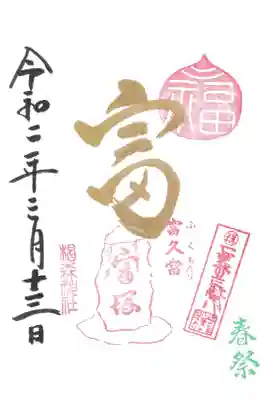 福
富
ふくあたり
富久當
富塚
椙森神社
春祭
令和二年二月十三日